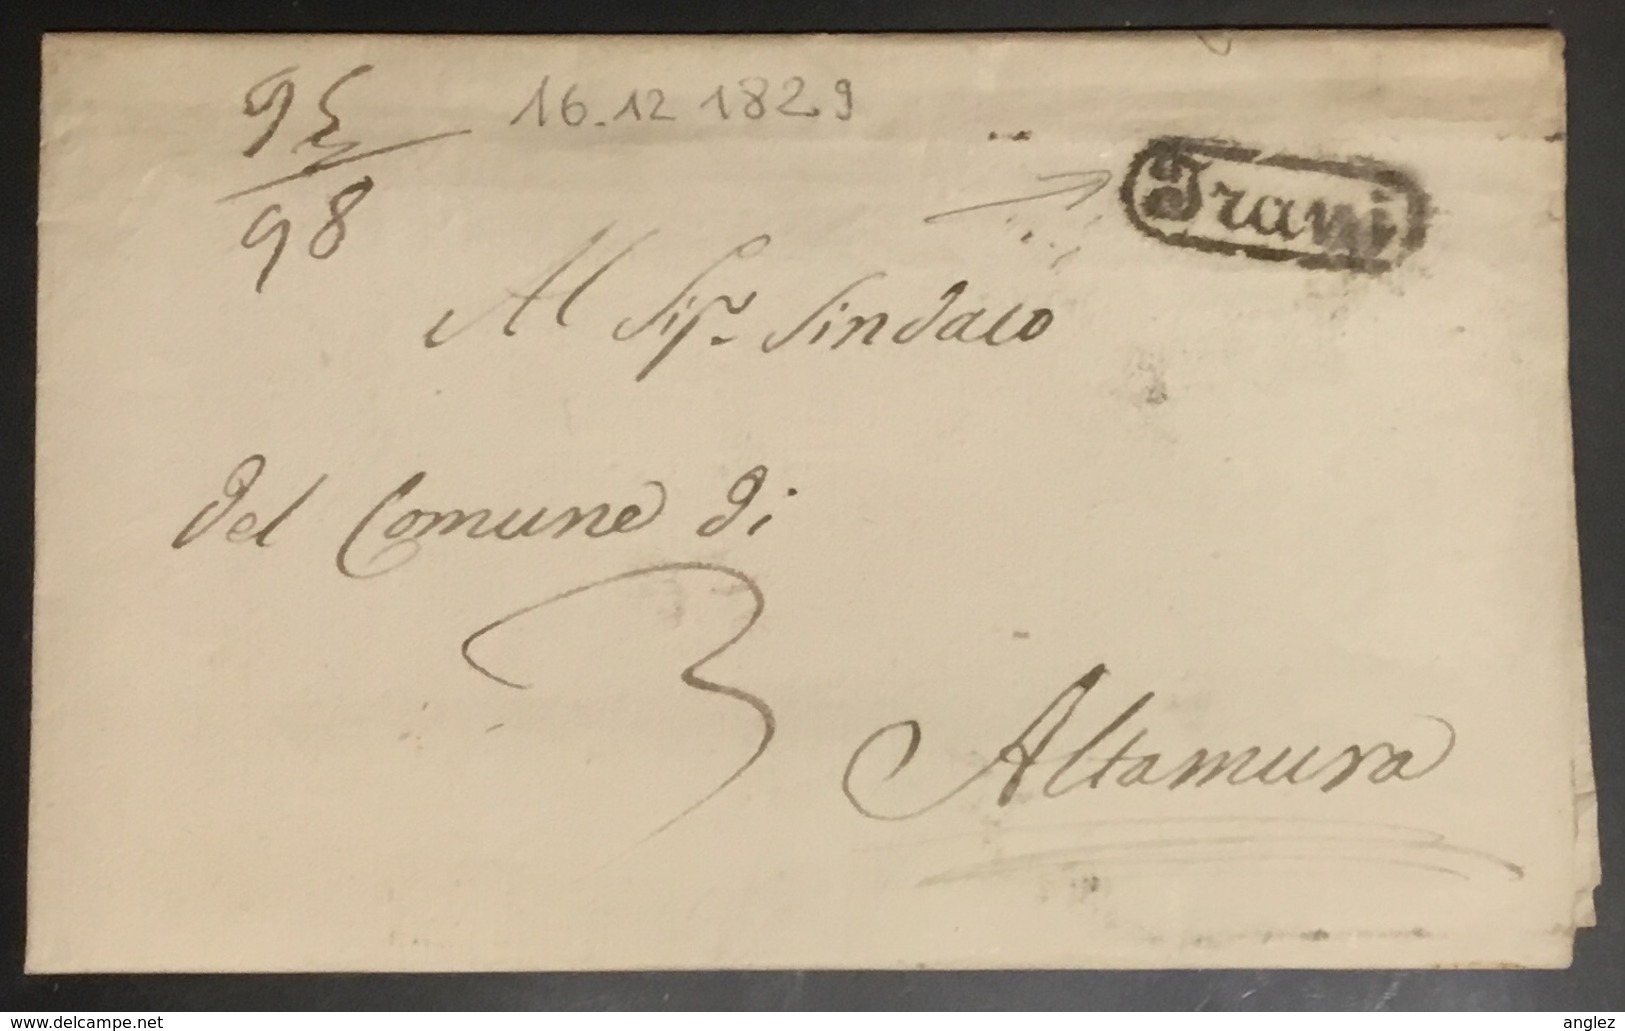 95
98
16.12 1829
Trani
Al Sig.r Sindaco
del Comune di
3
Altamura
www.delcampe.net
anglez